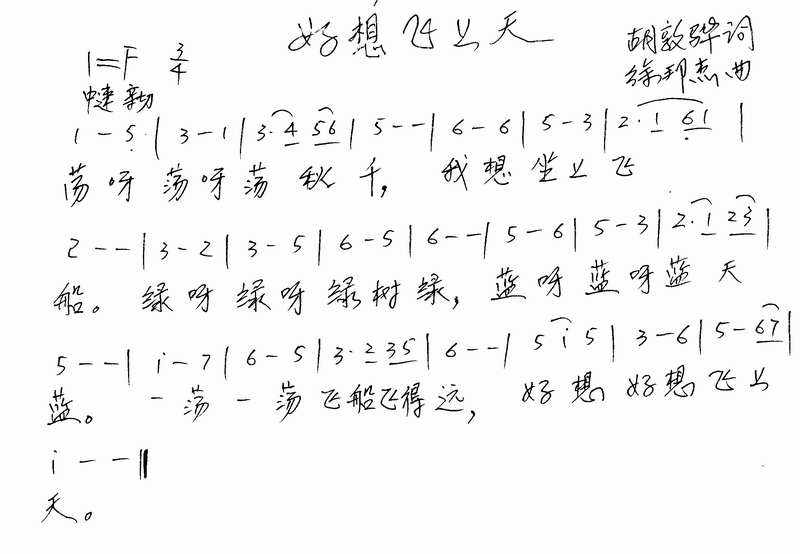 好想飞上天
1=F 3/4
胡敦骅词
徐邦杰曲
中速
1 - 5 | 3 - 1 | 3· 4 56 | 5 - - | 6 - 6 | 5 - 3 | 2· 1 61 |
荡呀荡呀荡秋千,我想坐上飞
2 - - | 3 - 2 | 3 - 5 | 6 - 5 | 6 - - | 5 - 6 | 5 - 3 | 2· 1 23 |
船。绿呀绿呀绿树绿,蓝呀蓝呀蓝天
5 - - | i - 7 | 6 - 5 | 3· 2 35 | 6 - - | 5 i 5 | 3 - 6 | 5 - 67 |
蓝。一荡一荡飞船飞得远,好想好想飞上
i - - ‖
天。